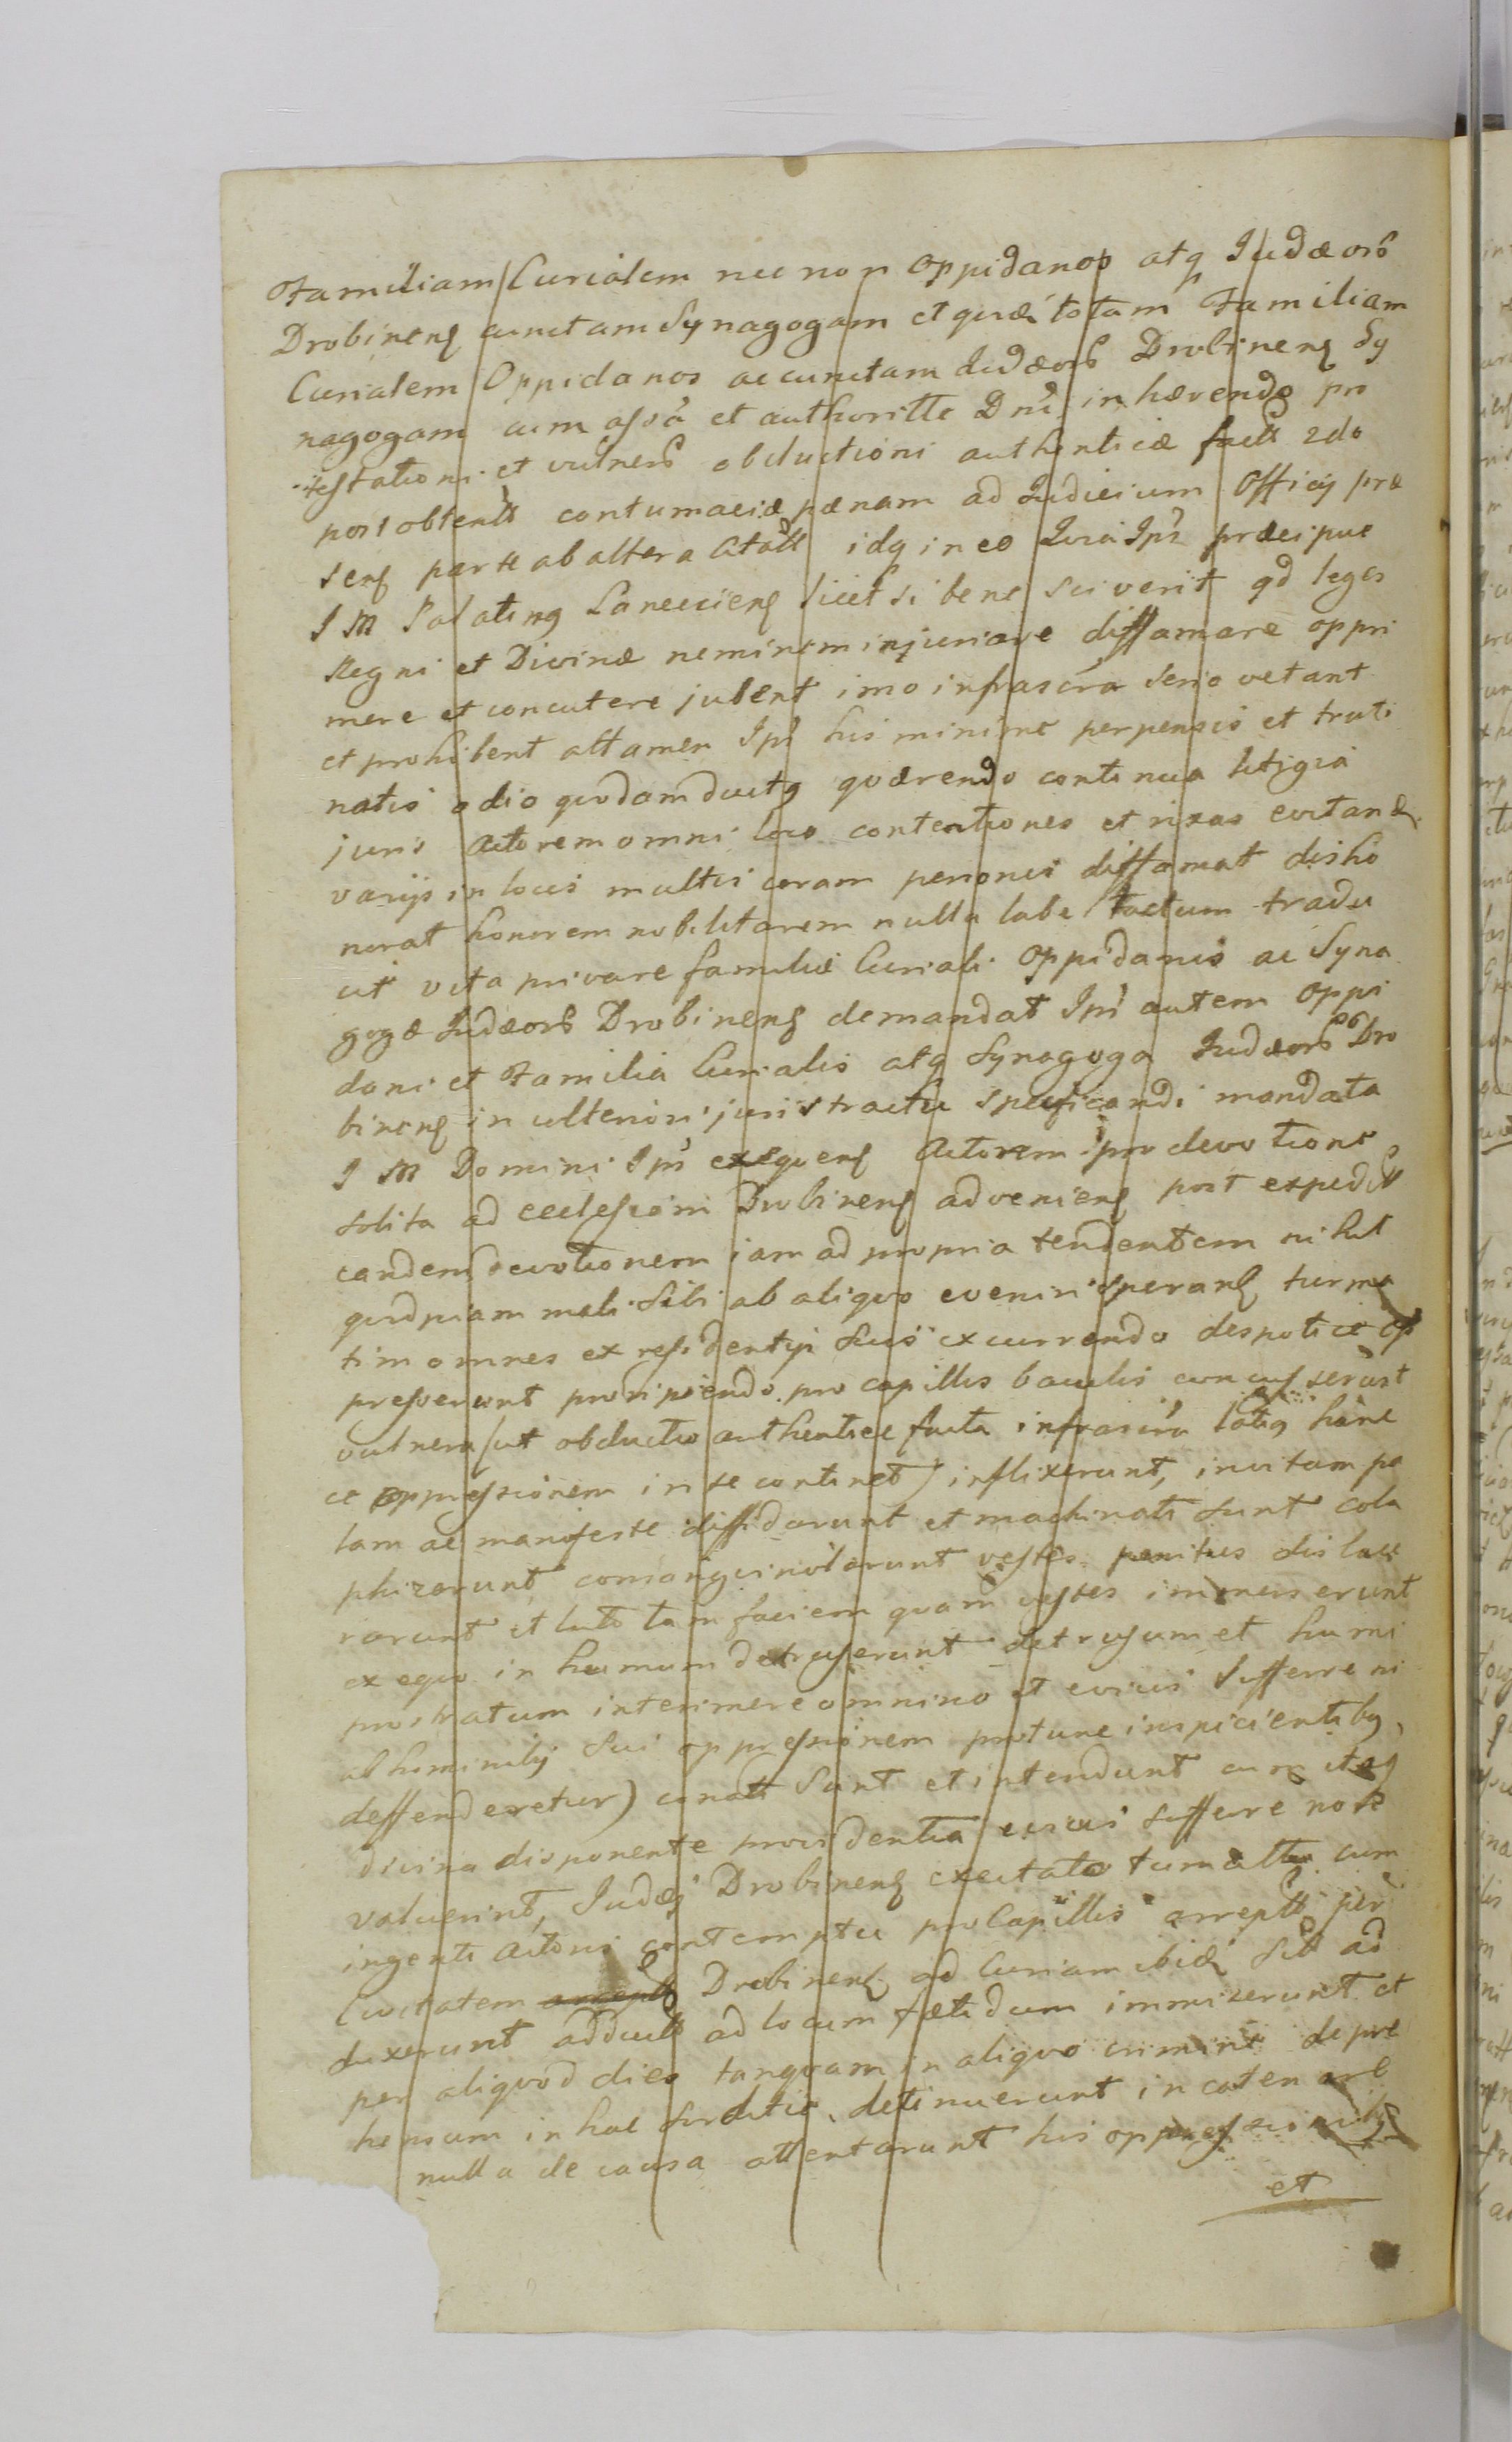 Familiam Curialem nec non Oppidanos atq Judæorb
Drobinens cunctam Synagogam et quidē totam Familiam
Curialem Oppidanos ac cunctam Judæorb Drobinens Sy
nagogam cum assā et authoritte Dni inhærendo pro
testationi et vulnerb obductioni authenticæ factt 2do
post obtentt contumaciæ pænam ad Judicium Officij præ
sens parte ab altera Citatt idq in eo Quia Ips præcipue
J M Palatinq Lanciciens licet si bene sciverit qd leges
Regni et Divinæ neminem injuriare diffamare oppri
mere et concutere jubent imo infrascra serio vetant
et prohibent attamen Ips his minime perpensis et truti
natis odio quodam ductq quærendo continua litigia
juris Actorem omni loco contentiones et rixas evitand
varijs in locis multis coram personis diffamat disho
norat honorem nobilitarem nulla labe tactum tradu
cit vita privare familiæ Curiali Oppidanis ac Syna
gogæ Judæorb Drobinens demandat Ips autem Oppi
dani et Familia Curialis atq Synagoga Judæorb Dro
binens in ulteriori juris tractu specificandi mandata
J M Domini Ips exequens Actorem pro devotione
solita ad Ecclesiam Drobinens adveniens post expeditt
eandem devotionem iam ad propria tendentem nihil
quidpiam mali sibi ab aliquo eveniri sperans turma
tim omnes ex residentijs suis excurrendo despotice op
presserunt proripiendo pro capillis baculis concusserunt
vulnera (ut obductio authentice facta infrascra latiq hanc
ce oppressionem in se continet) inflixerunt, invitam pa
lam ac manifeste diffidarunt et machinati sunt cola
phizarunt, consanguinolarunt vestes penitus dislace
rarunt et luto tam faciem quam vestes immerserunt
ex equo in humum detruserunt detrusum et humi
prostratum interimere omnino et e vivis sufferre ni
ab hominibq sui oppressionem protunc inspicientibq
deffenderetur) conatt sunt et intendunt cumq itaq
divina disponente providentia e vivis sufferre non
valuerint, Judæi Drobinens excitato tumultu cum
ingenti Actoris contemptu pro Capillis arreptt per
Civitatem Drobinens ad Curiam ibid sitt ad
duxerunt adductt ad locum fætidum immiserunt et
per aliquod dies tanquam in aliquo crimine depre
hensum in hac sorditie detinuerunt incatenare
nulla de causa attentarunt his oppressionibq
et